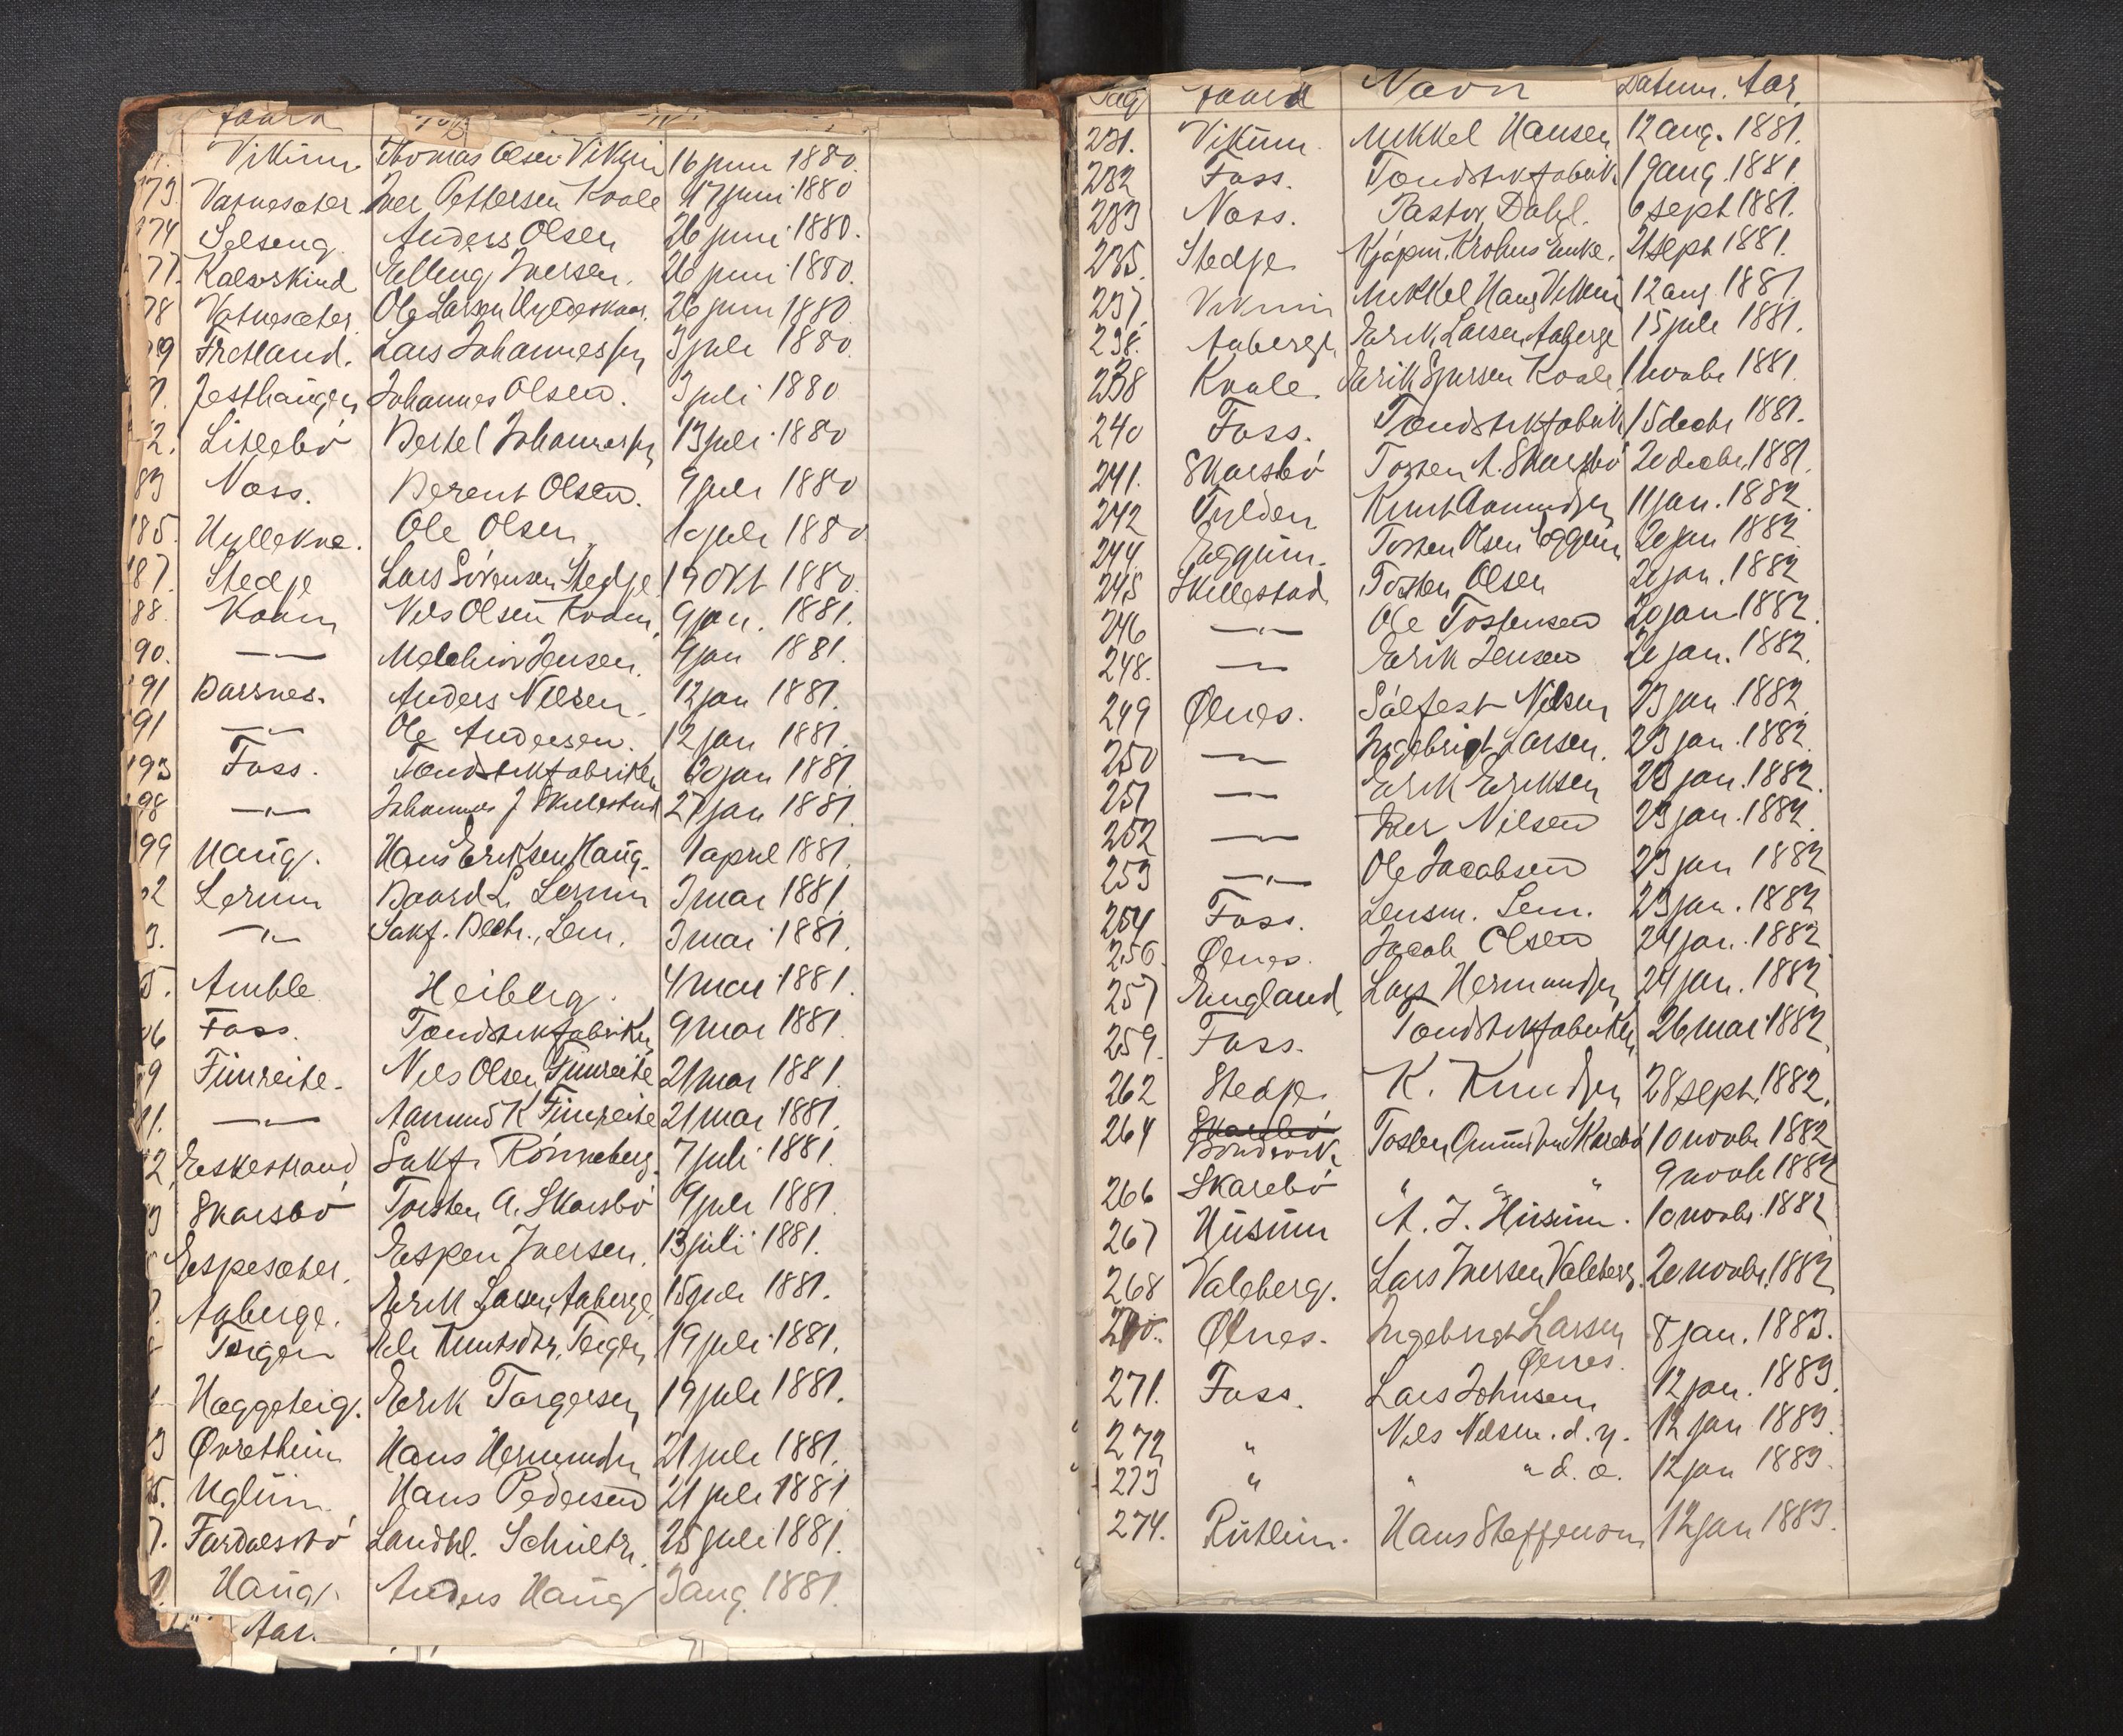 Gaard
Vikum. Thomas Olsen Vikum 16 juni 1880.
173. Vatnesæter. Iver Pettersen Kvale 17 juni 1880
174 Selseng. Anders Olsen 26 juni 1880.
177. Kalverskind Elling Iversen. 26 juni 1880.
178 Vatnesæter Ole Larsen 26 juni 1880
Fretland. Lars Johannessen 3 juli 1880.
Johannes Olsen. 3 juli 1880
2. Litlebö Bertel Johannessen 13 juli 1880
83 Næss. Berent Olsen. 9 juli 1880
185. Hyllekve. Ole Olsen. 10 juli 1880
187. Stedje Lars Sörensen Stedje 19 Okt 1880.
88. Kvam Nils Olsen Kvam. 9 jan. 1881.
90. —"— Melchior Jensen. 9 jan 1881.
191 Barsnes. Anders Nilsen. 12 jan 1881.
191 —"— Ole Andersen. 12 jan 1881.
193 Foss. Tøndstikfabriken 20 jan 1881.
98 —"— Johannes J Skielestad 27 jan 1881.
99 Haug. Hans Eriksen Haug. 1 april 1881.
02 Lerum Baard L. Lerum 3 mai 1881.
3. —"— Sakf. Bech., Lem. 3 mai 1881.
5. Amble Heiberg. 4 mai 1881.
06 Foss. Tøndstikfabriken 9 mai 1881.
9 Fimreite. Nils Olsen Fimreite 21 mai 1881.
11. —"— Aamund K Fimreite 21 mai 1881.
12 Eskestrand Sakf. Rönneberg. 7 juli 1881.
3 Skarsbö Torsten A. Skarsbö 9 juli 1881.
Espesæter. Espen Iversen. 13 juli 1881.
Aaberge. Erik Larsen Aaberge 15 juli 1881.
Teigen Knutsdtr. Teigen 19 juli 1881.
Haggeteig. Erik Torgersen 19 juli 1881.
3 Øvrethun Hans Hermundsen 21 juli 1881.
5. Uglum. Hans Pedersen 21 juli 1881
7. Fardalsbö Landhl. Schultz. 25 juli 1881.
Haug. Anders Haug 3 aug. 1881.
Aar.
Pag Gaard Navn Datum. Aar.
231. Vikum. Mikkel Hansen 12 aug. 1881.
232 Foss. Tøndstikfabrik. 19 aug. 1881
233 Næss. Pastor Dahl. 6 sept 1881.
235. Stedje Kjöpm. Krohns Enke. 21 sept 1881.
237. Vikum Mikkel Hans. Vikum 12 aug 1881.
238. Aaberge Erik Larsen Aaberge 15 juli 1881.
238 Kvale. Erik Sjursen Kvale 1 novbr 1881.
240 Foss. Tøndstikfabrik 15 decbr 1881.
241. Skarsbö Torsten A. Skarsbö 20 decbr. 1881.
242 Tylden Knut Aamundsen 11 jan. 1882.
244. Eggum. Torsten Olsen Eggum 20 jan 1882.
245 Skillestad. Torsten Olsen 20 jan. 1882
246 —"— Ole Tostensen 20 jan 1882.
248. —"— Erik Jensen 20 jan. 1882.
249 Ølnes. Sålfest Nilsen 23 jan. 1882.
250 —"— Ingebrigt Larsen. 23 jan. 1882.
251 —"— Erik Eriksen 23 jan. 1882.
252 —"— Iver Nilsen 23 jan. 1882.
253 —"— Ole Jacobsen 23 jan 1882
254 Foss. Lensm. Lem. 23 jan. 1882
256. Ølnes. Jacob Olsen 24 jan. 1882
257 England Lars Hermundsen 24 jan. 1882.
259. Foss. Tøndstikfabriken 26 mai 1882.
262 Stedje. K. Knudsen 28 sept. 1882.
264 Skarsbö Torsten Skarsbö 10 novbr 1882
Bondevik.
266 Skarsbö " " " 9 novbr 1882
267 Husum A. J. Husum. 10 novbr. 1882
268 Valeberg. Lars Iversen Valeberg. 20 novbr. 1882
270. Ølnes. Ingebrigt Larsen 8 jan. 1883.
Ølnes.
271. Foss. Lars Johnsen 12 jan. 1883.
272 " Nils Nilsen. d. y. 12 jan 1883.
273 " " " d. æ. 12 jan 1883.
274. Rutlin. Hans Steffenson 12 jan 1883.